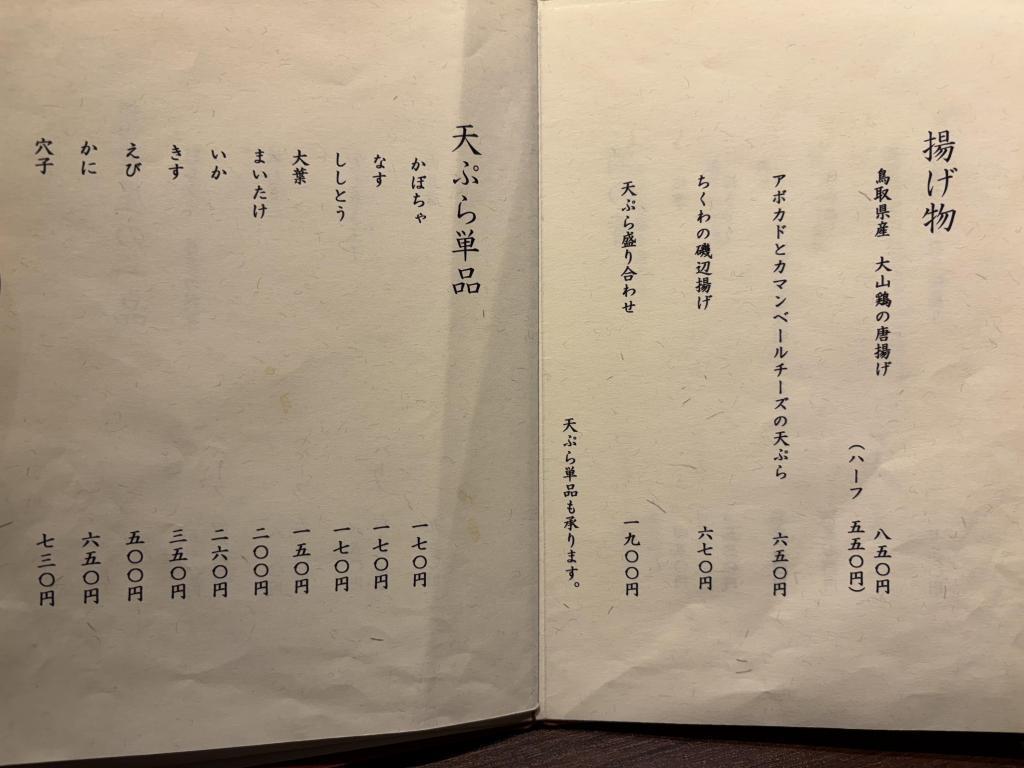 揚げ物
鳥取県産　大山鶏の唐揚げ　八五〇円
（ハーフ　五五〇円）
アボカドとカマンベールチーズの天ぷら　六五〇円
ちくわの磯辺揚げ　六七〇円
天ぷら盛り合わせ　一九〇〇円
天ぷら単品も承ります。
天ぷら単品
かぼちゃ　一七〇円
なす　一七〇円
ししとう　一七〇円
大葉　一五〇円
まいたけ　二〇〇円
いか　二六〇円
きす　三五〇円
えび　五〇〇円
かに　六五〇円
穴子　七三〇円